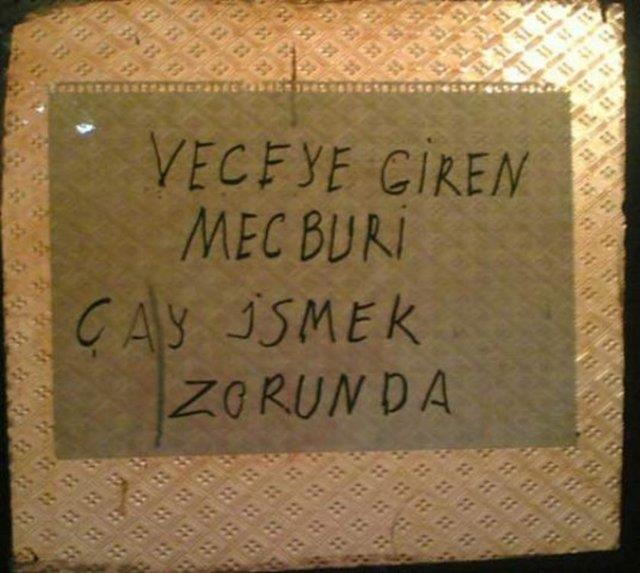 VEÇEYE GİREN
MECBURİ
ÇAY İSMEK
ZORUNDA